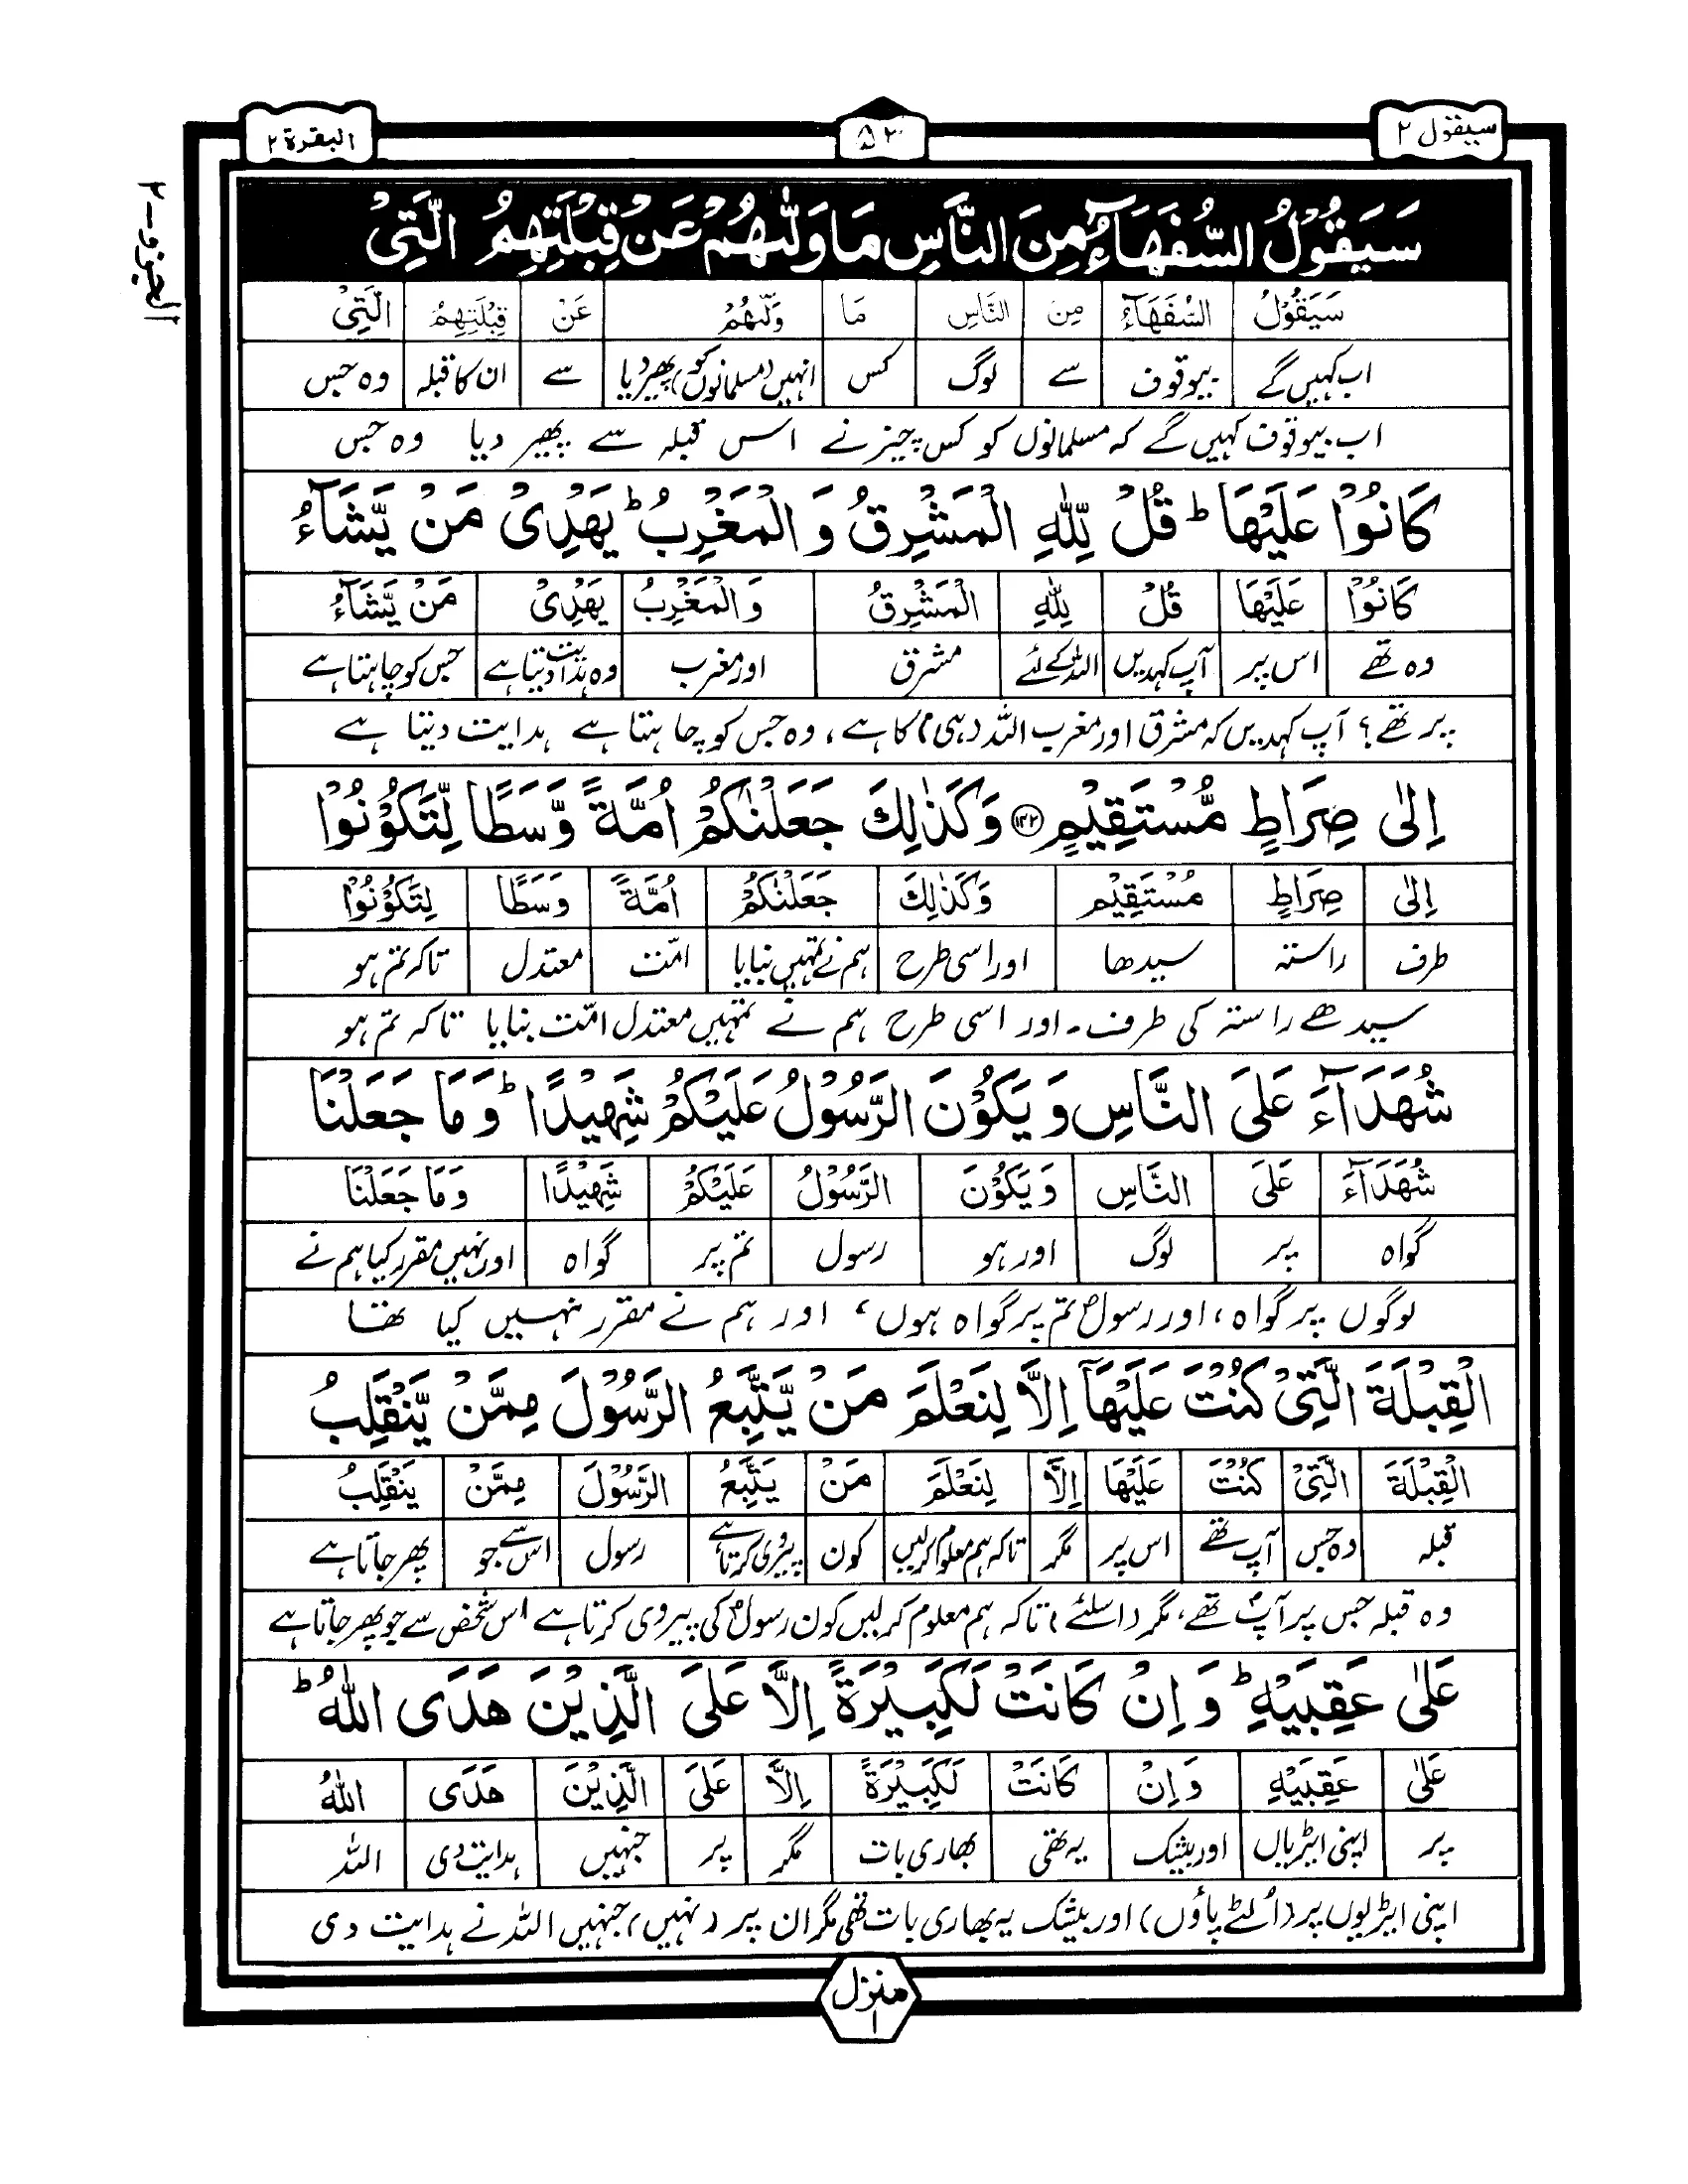 سیقول ٢
٥٢
البقرة ٢
الجزو-٢
سَيَقُوْلُ السُّفَهَآءُ مِنَ النَّاسِ مَا وَلّٰىهُمْ عَنْ قِبْلَتِهِمُ الَّتِيْ
سَيَقُوْلُ السُّفَهَآءُ مِنَ النَّاسِ مَا وَلّٰىهُمْ عَنْ قِبْلَتِهِمُ الَّتِيْ
اب کہیں گے بیوقوف سے لوگ کس انہیں (مسلمانوں کو) پھیر دیا سے ان کا قبلہ وہ جس
اب بیوقوف کہیں گے کہ مسلمانوں کو کس چیز نے اس قبلہ سے پھیر دیا وہ جس
كَانُوْا عَلَيْهَا ؕ قُلْ لِّلّٰهِ الْمَشْرِقُ وَ الْمَغْرِبُ ؕ يَهْدِيْ مَنْ يَّشَآءُ
كَانُوْا عَلَيْهَا قُلْ لِلّٰهِ الْمَشْرِقُ وَالْمَغْرِبُ يَهْدِيْ مَنْ يَّشَآءُ
وہ تھے اس پر آپ کہدیں اللہ کے لئے مشرق اور مغرب وہ ہدایت دیتا ہے جس کو چاہتا ہے
پر تھے؟ آپ کہدیں کہ مشرق اور مغرب اللہ (ہی) کا ہے، وہ جس کو چاہتا ہے ہدایت دیتا ہے
اِلٰى صِرَاطٍ مُّسْتَقِيْمٍ ۝١٤٢ وَكَذٰلِكَ جَعَلْنٰكُمْ اُمَّةً وَّسَطًا لِّتَكُوْنُوْا
اِلٰى صِرَاطٍ مُسْتَقِيْمٍ وَكَذٰلِكَ جَعَلْنٰكُمْ اُمَّةً وَسَطًا لِتَكُوْنُوْا
طرف راستہ سیدھا اور اسی طرح ہم نے تمہیں بنایا امّت معتدل تاکہ تم ہو
سیدھے راستہ کی طرف۔ اور اسی طرح ہم نے تمہیں معتدل امّت بنایا تاکہ تم ہو
شُهَدَآءَ عَلَى النَّاسِ وَ يَكُوْنَ الرَّسُوْلُ عَلَيْكُمْ شَهِيْدًا ؕ وَمَا جَعَلْنَا
شُهَدَآءَ عَلَى النَّاسِ وَ يَكُوْنَ الرَّسُوْلُ عَلَيْكُمْ شَهِيْدًا وَمَا جَعَلْنَا
گواہ پر لوگ اور ہو رسول تم پر گواہ اور نہیں مقرر کیا ہم نے
لوگوں پر گواہ، اور رسولؐ تم پر گواہ ہوں، اور ہم نے مقرر نہیں کیا تھا
الْقِبْلَةَ الَّتِيْ كُنْتَ عَلَيْهَآ اِلَّا لِنَعْلَمَ مَنْ يَّتَّبِعُ الرَّسُوْلَ مِمَّنْ يَّنْقَلِبُ
الْقِبْلَةَ الَّتِيْ كُنْتَ عَلَيْهَا اِلَّا لِنَعْلَمَ مَنْ يَتَّبِعُ الرَّسُوْلَ مِمَّنْ يَنْقَلِبُ
قبلہ وہ جس آپ تھے اس پر مگر تاکہ ہم معلوم کرلیں کون پیروی کرتا ہے رسول اس سے جو پھر جاتا ہے
وہ قبلہ جس پر آپؐ تھے، مگر (اسلئے) تاکہ ہم معلوم کرلیں کون رسولؐ کی پیروی کرتا ہے اس شخص سے جو پھر جاتا ہے
عَلٰى عَقِبَيْهِ ؕ وَ اِنْ كَانَتْ لَكَبِيْرَةً اِلَّا عَلَى الَّذِيْنَ هَدَى اللّٰهُ ؕ
عَلٰى عَقِبَيْهِ وَ اِنْ كَانَتْ لَكَبِيْرَةً اِلَّا عَلَى الَّذِيْنَ هَدَى اللّٰهُ
پر اپنی ایڑیاں اور بیشک یہ تھی بھاری بات مگر پر جنہیں ہدایت دی اللہ
اپنی ایڑیوں پر (اُلٹے پاؤں) اور بیشک یہ بھاری بات تھی مگر ان پر (نہیں) جنہیں اللہ نے ہدایت دی
منزل
١